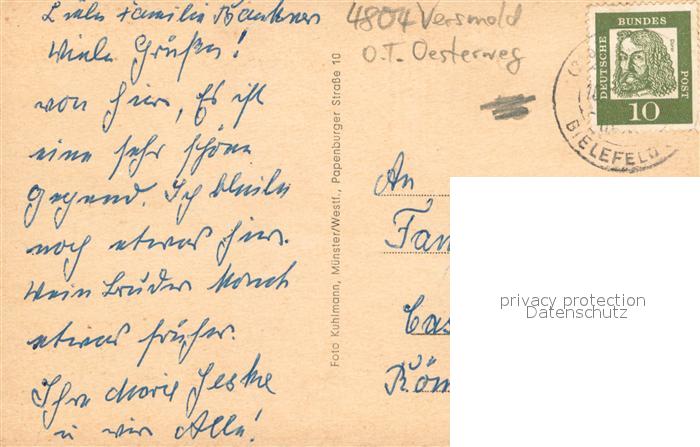 Liebe Familie
Viele Grüßen!
von hier, Es ist
eine sehr schöne
Gegend. Ich bleibe
noch etwas hier.
Mein Bruder
etwas früher.
Ihre Marie Jeske
u wir Alle!
Foto Kuhlmann, Münster/Westf., Papenburger Straße 10
4804 Versmold
O.T. Oesterweg
DEUTSCHE BUNDES POST
10
BIELEFELD
An
Fam
Cas
Röm
privacy protection
Datenschutz